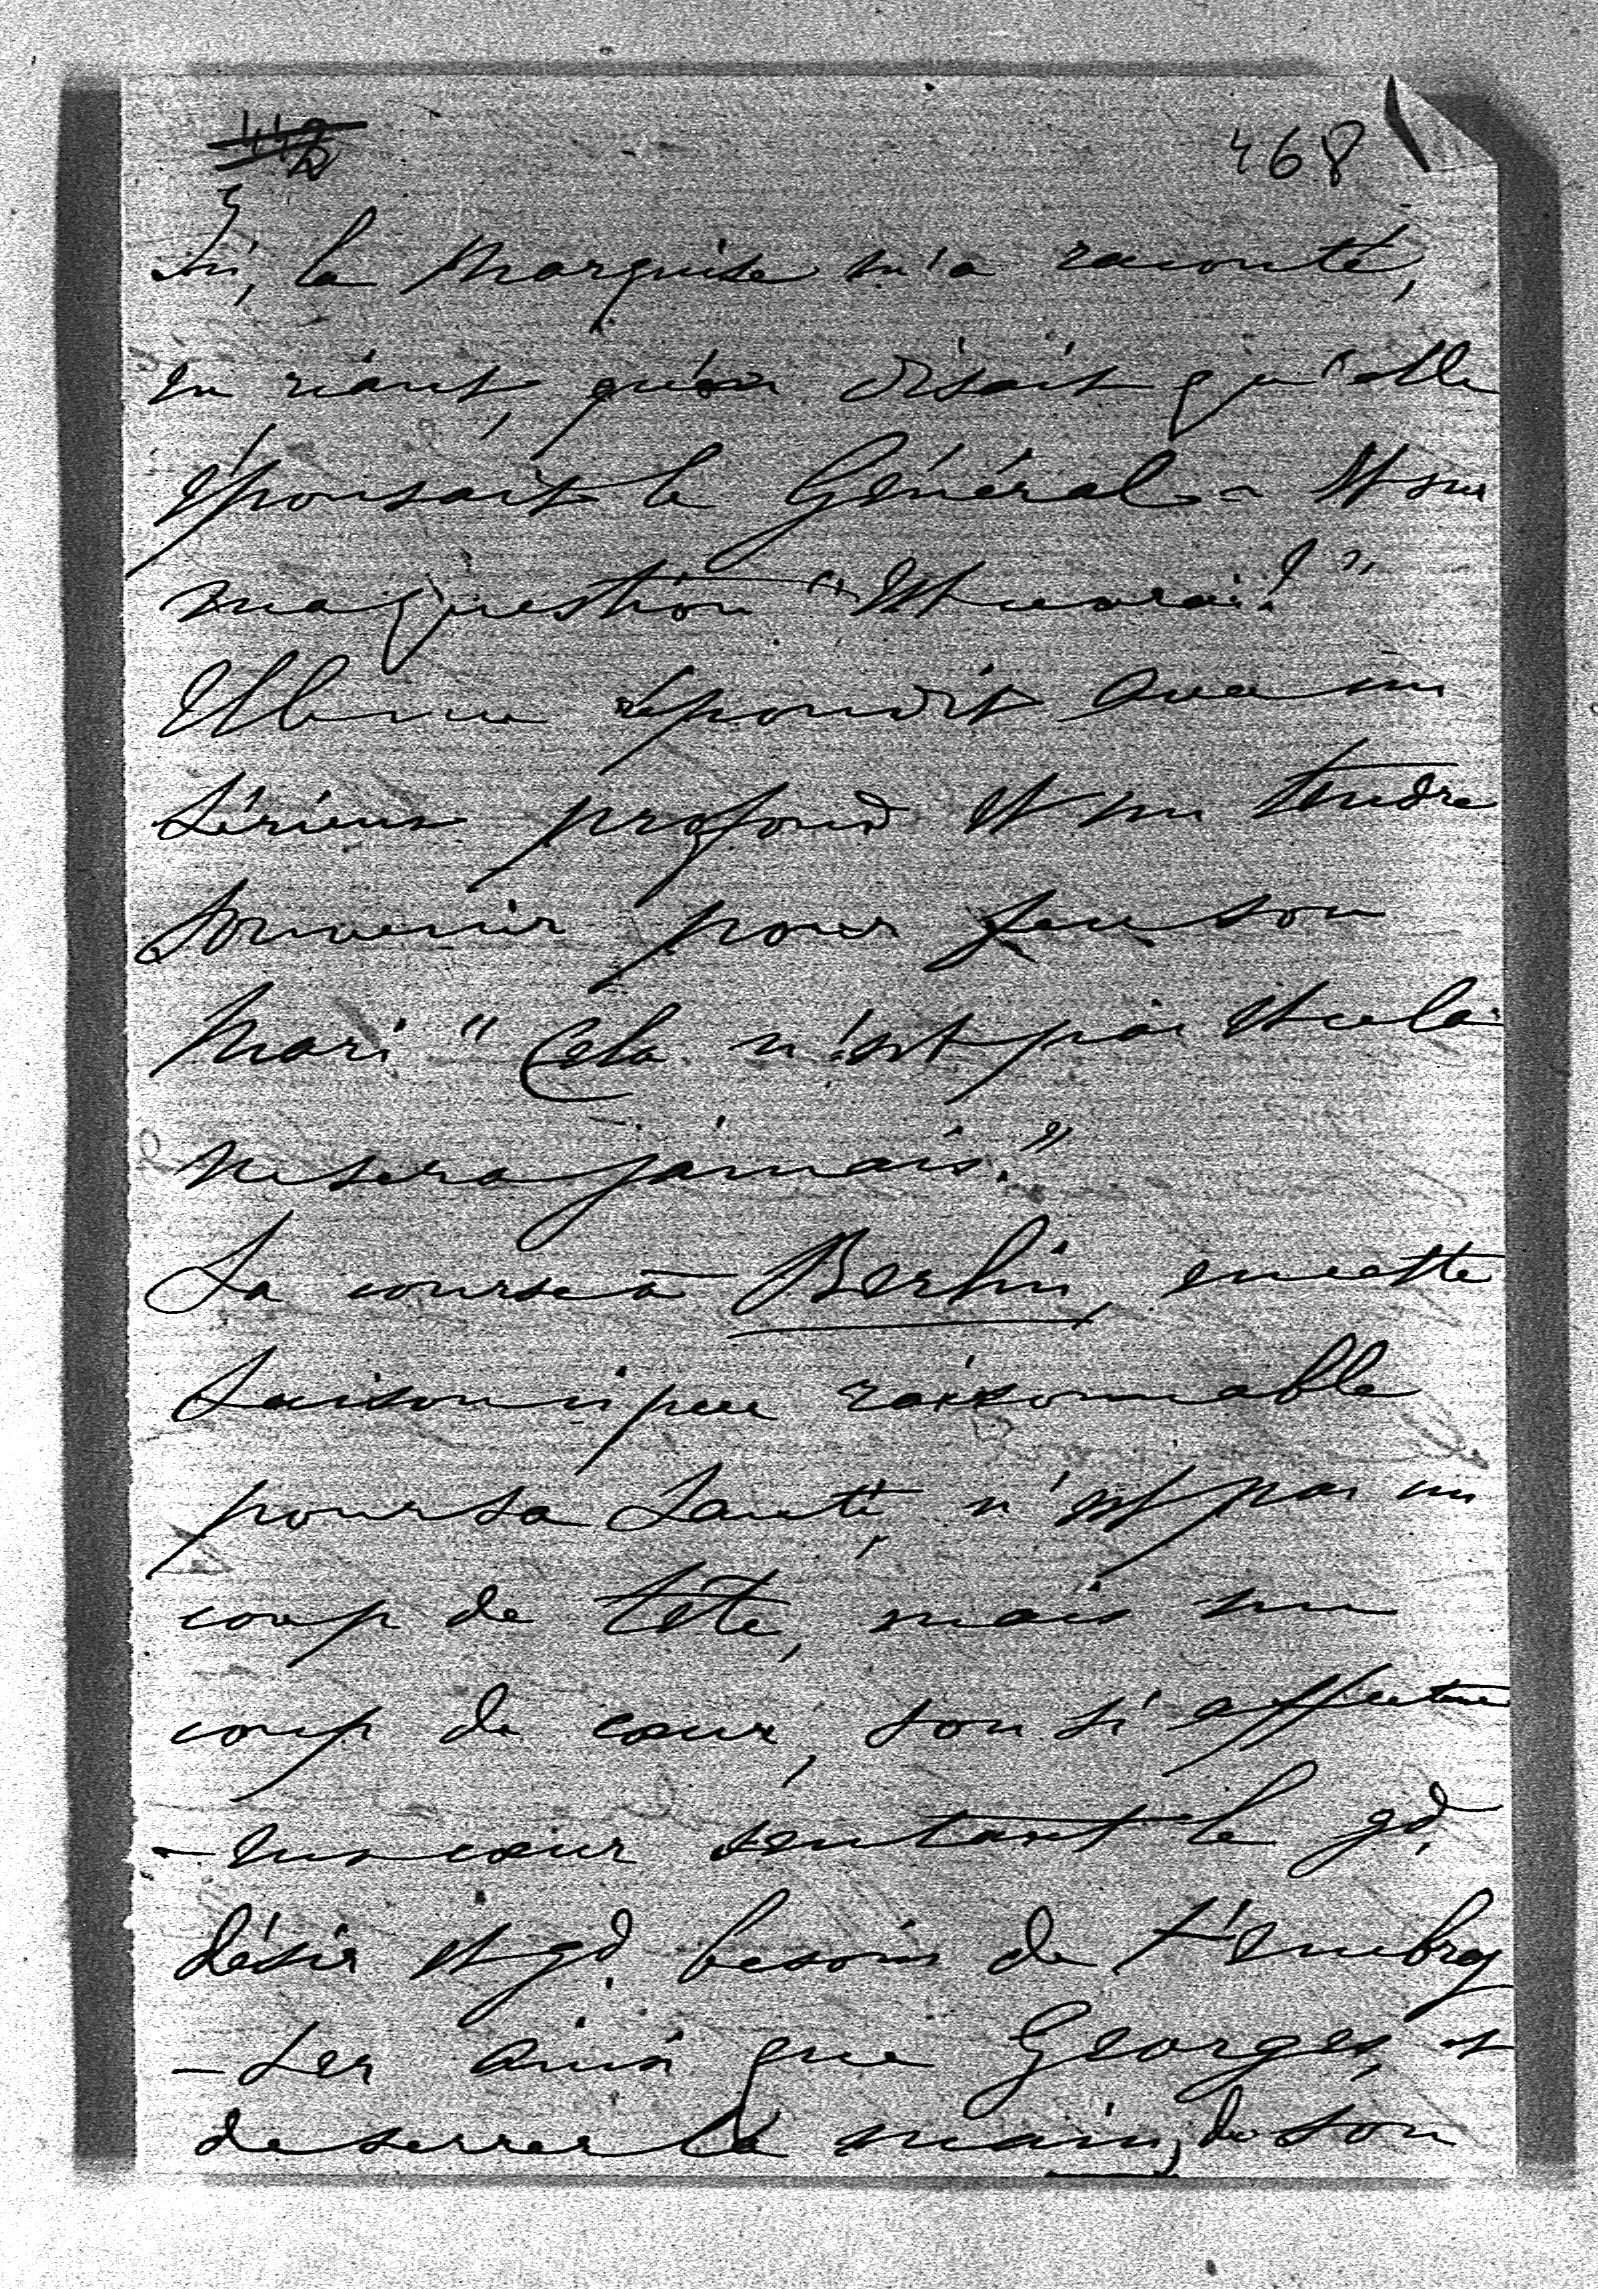 468
la Marquise m'a raconté,
en riant, qu'on disait qu'elle
épousait le Général - Et sur
ma question "Est ce vrai?"
Elle me répondit avec un
sérieux profond et un tendre
souvenir pour feu son
Mari "Cela n'est pas et cela
ne sera jamais."
Sa course à Berlin, en cette
saison si peu raisonnable
pour sa santé n'est pas un
coup de tête, mais un
coup de cœur, son si affectue
-ux cœur sentant le gd
désir et gd besoin de t'embras
-ser ainsi que Georges, et
de serrer la main, de son